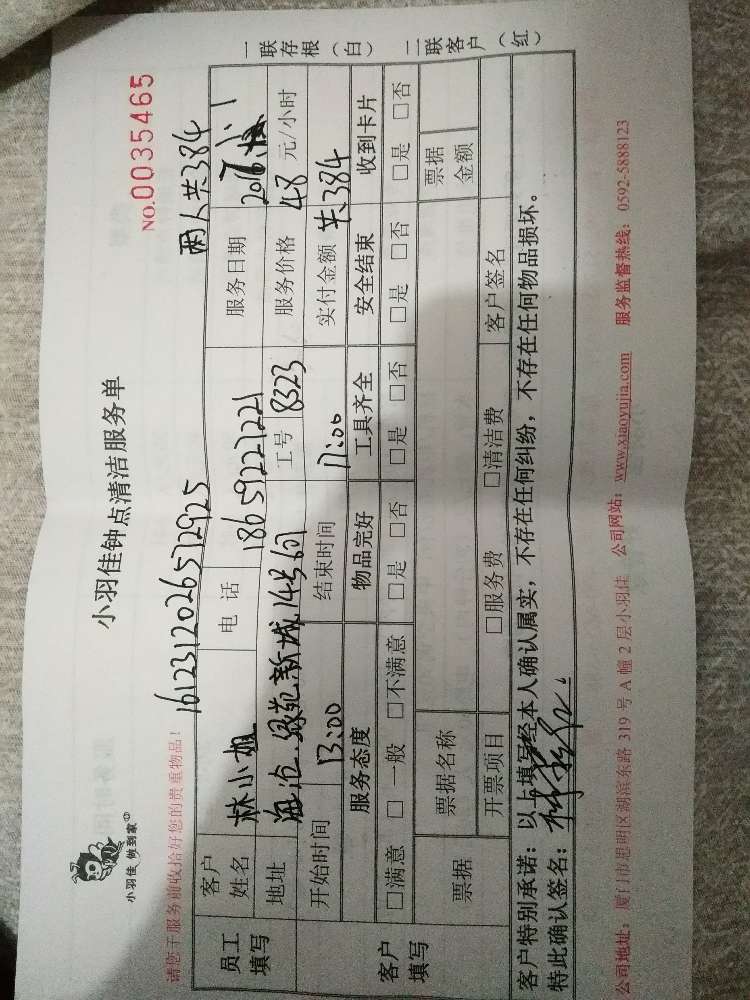 小羽佳 做到家
小羽佳钟点清洁服务单
NO.0035465
请您于服务前收拾好您的贵重物品！
1612312026572925
两人共384
员工填写
客户姓名 林小姐 电话 18659227221 服务日期
地址 海沧.绿苑新城14号601 工号 8323 服务价格 48 元/小时
客户填写
开始时间 13:00 结束时间 17:00 实付金额 共384
服务态度 物品完好 工具齐全 安全结束 收到卡片
□满意 □一般 □不满意 □是 □否 □是 □否 □是 □否 □是 □否
票据 票据名称 票据金额
开票项目 □服务费 □清洁费 客户签名
客户特别承诺：以上填写经本人确认属实，不存在任何纠纷，不存在任何物品损坏。
特此确认签名：
公司地址：厦门市思明区湖滨东路 319 号 A 幢 2 层小羽佳 公司网站：www.xiaoyujia.com 服务监督热线：0592-5888123
一联存根（白） 二联客户（红）